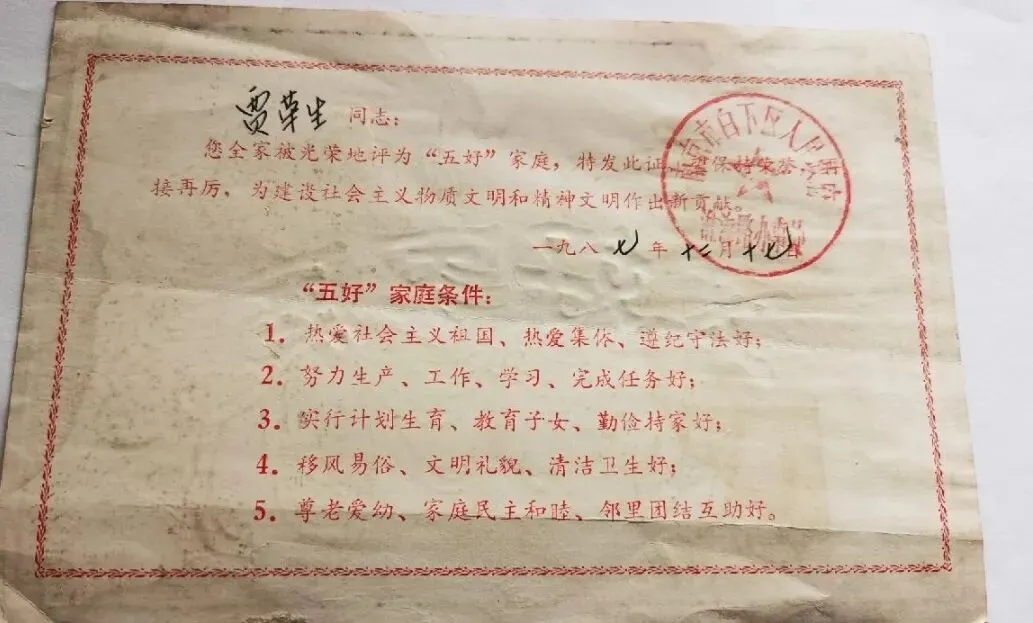 贾荣生 同志：
您全家被光荣地评为“五好”家庭，特发此证，望保持荣誉，
接再厉，为建设社会主义物质文明和精神文明作出新贡献。
一九八七年十二月十七日
南京市白下区人民政府
办事处
“五好”家庭条件：
1．热爱社会主义祖国、热爱集体、遵纪守法好；
2．努力生产、工作、学习、完成任务好；
3．实行计划生育、教育子女、勤俭持家好；
4．移风易俗、文明礼貌、清洁卫生好；
5．尊老爱幼、家庭民主和睦、邻里团结互助好。